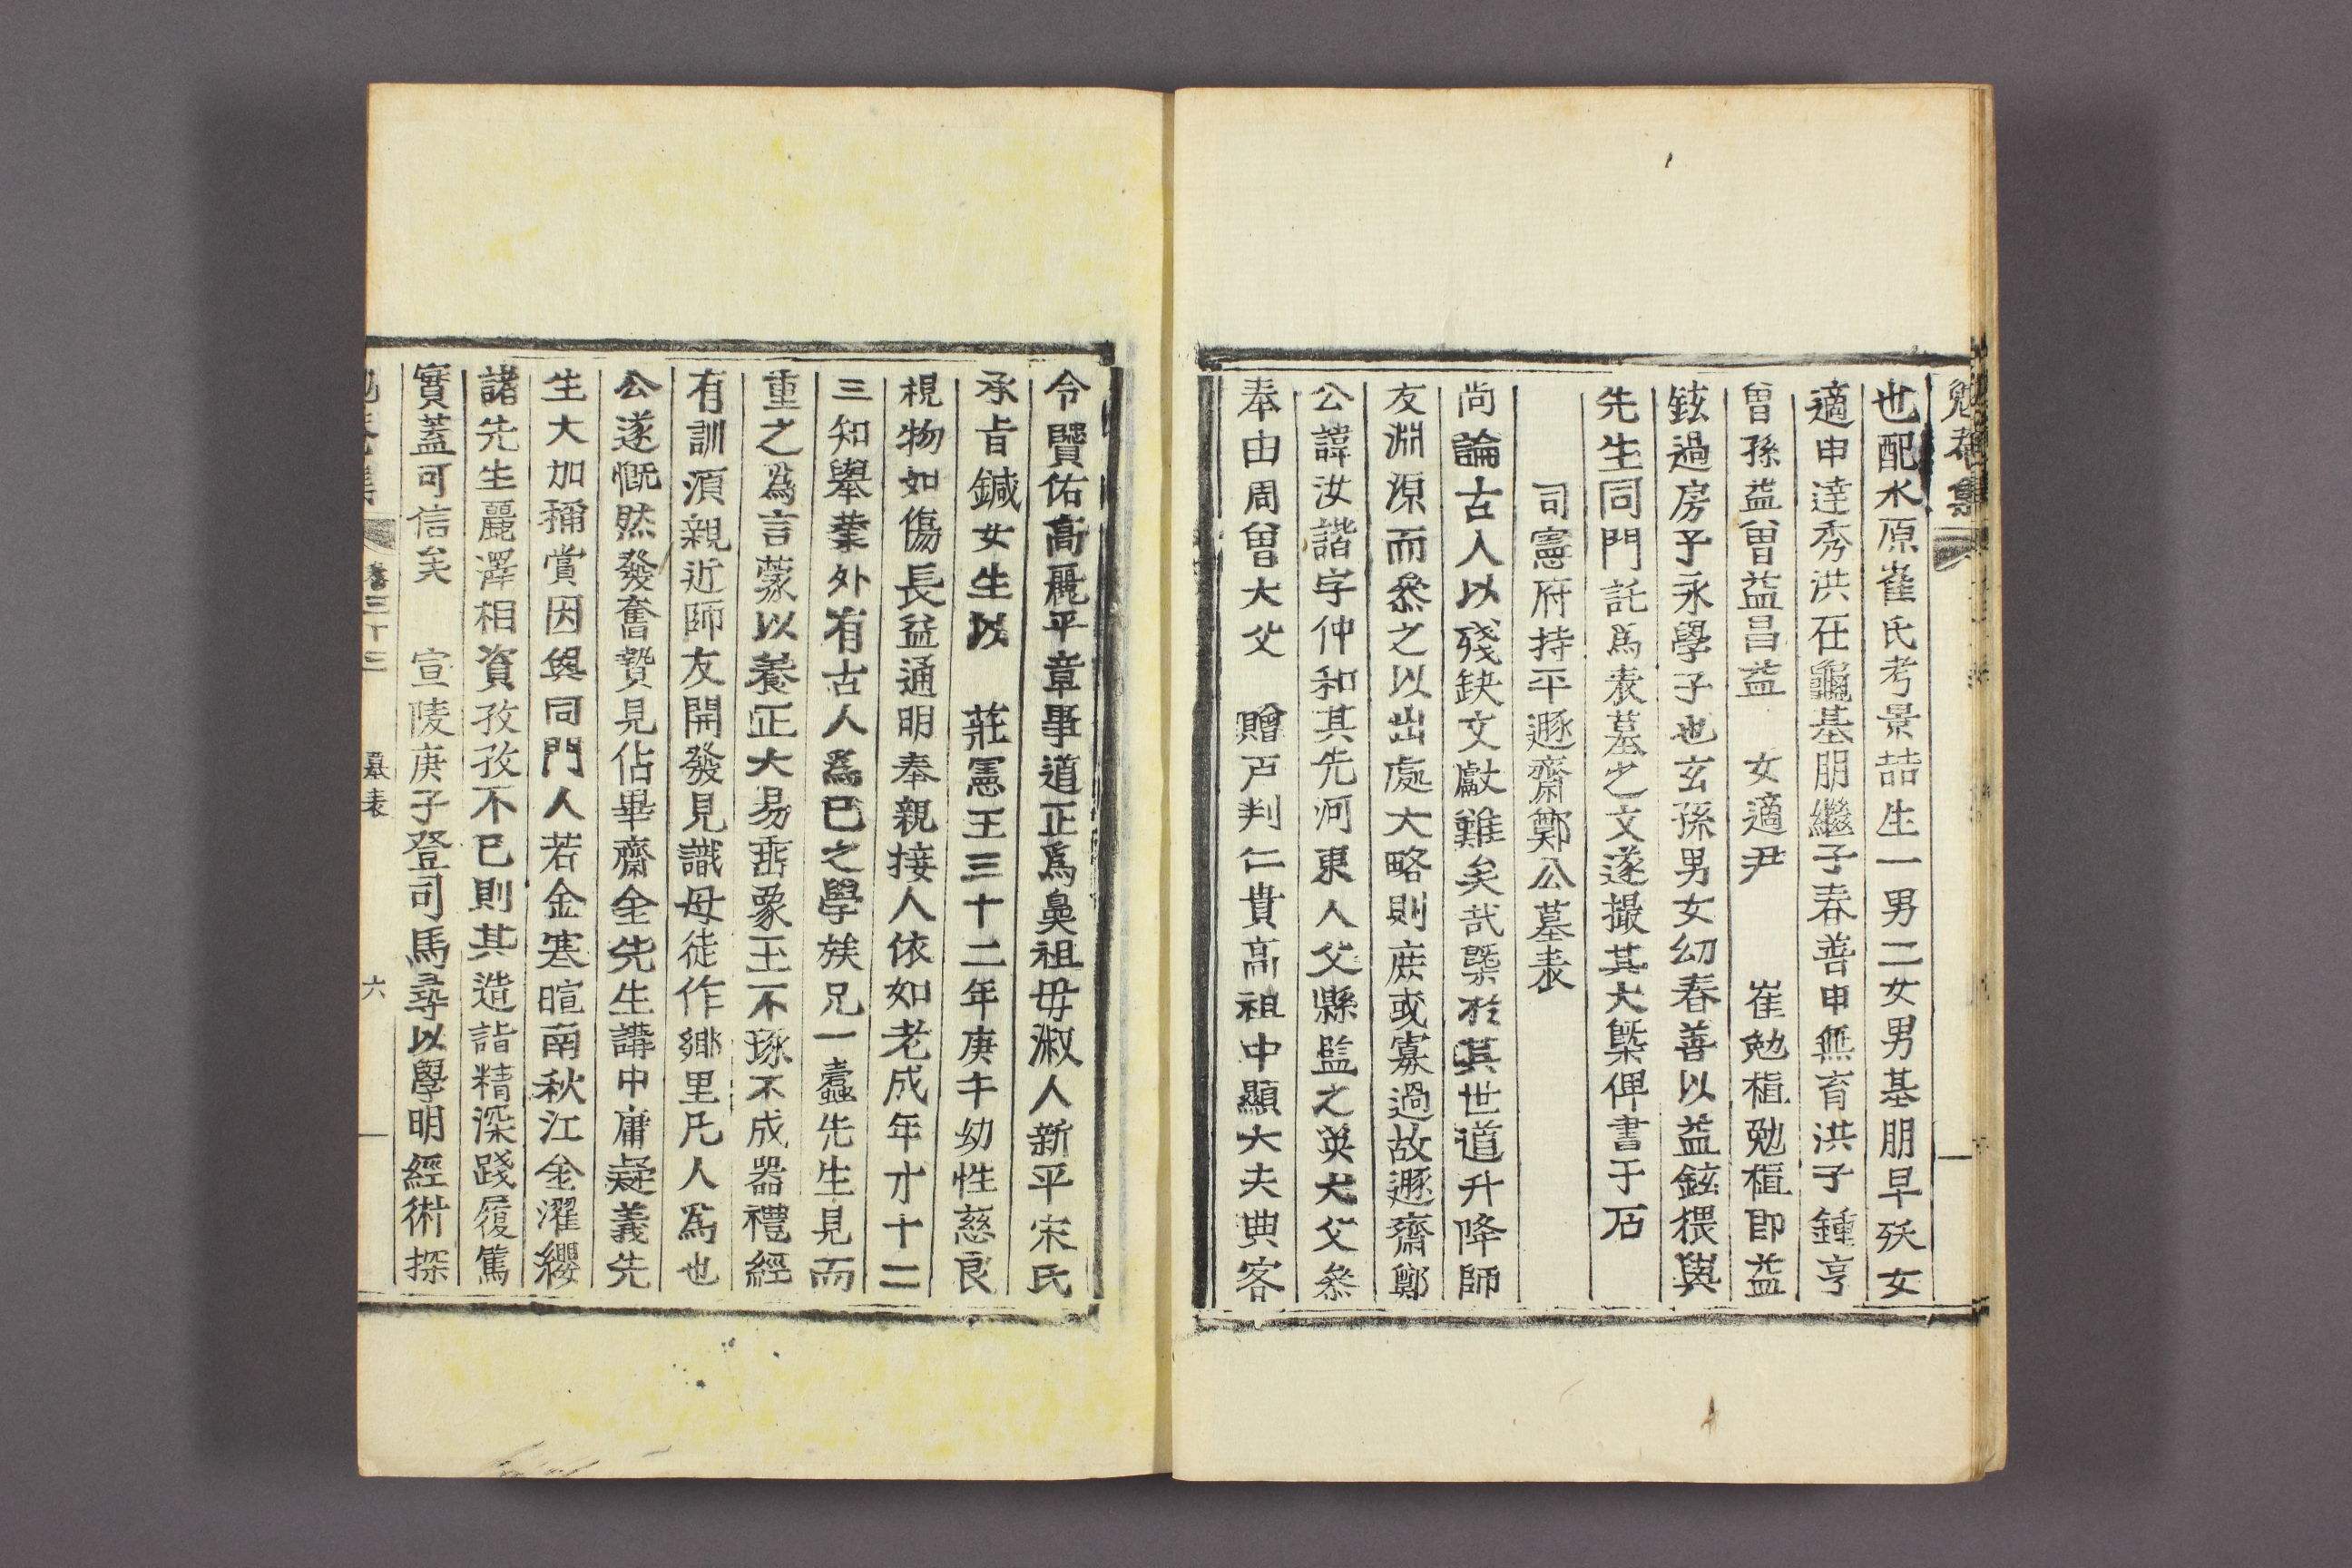 勉菴集
也配水原崔氏考景喆生一男二女男基朋早殀女
適申達秀洪在龜基朋繼子春善申無育洪子鍾亨
曾孫益曾益昌益 女適尹 崔勉植勉植卽益
鉉過房子永學子也玄孫男女幼春善以益鉉猥與
先生同門託爲表墓之文遂撮其大槩俾書于石
司憲府持平遯齋鄭公墓表
尚論古人以殘缺文獻難矣哉槩於其世道升降師
友淵源而叅之以出處大略則庶或寡過故遯齋鄭
公諱汝諧字仲和其先河東人父縣監之英大父叅
奉由周曾大父 贈戶判仁貴高祖中顯大夫典客
令贇佑高麗平章事道正爲鼻祖毋淑人新平宋氏
承旨鍼女生以 莊憲王三十二年庚午幼性慈良
視物如傷長益通明奉親接人依如老成年才十二
三知擧業外有古人爲已之學族兄一蠹先生見而
重之爲言蒙以養正大易垂象玉不琢不成器禮經
有訓湏親近師友開發見識毋徒作鄉里凡人爲也
公遂慨然發奮贄見佔畢齋金先生講中庸疑義先
生大加稱賞因與同門人若金寒暄南秋江金濯纓
諸先生麗澤相資孜孜不已則其造詣精深踐履篤
實蓋可信矣 宣陵庚子登司馬尋以學明經術探
卷三十三 墓表 六